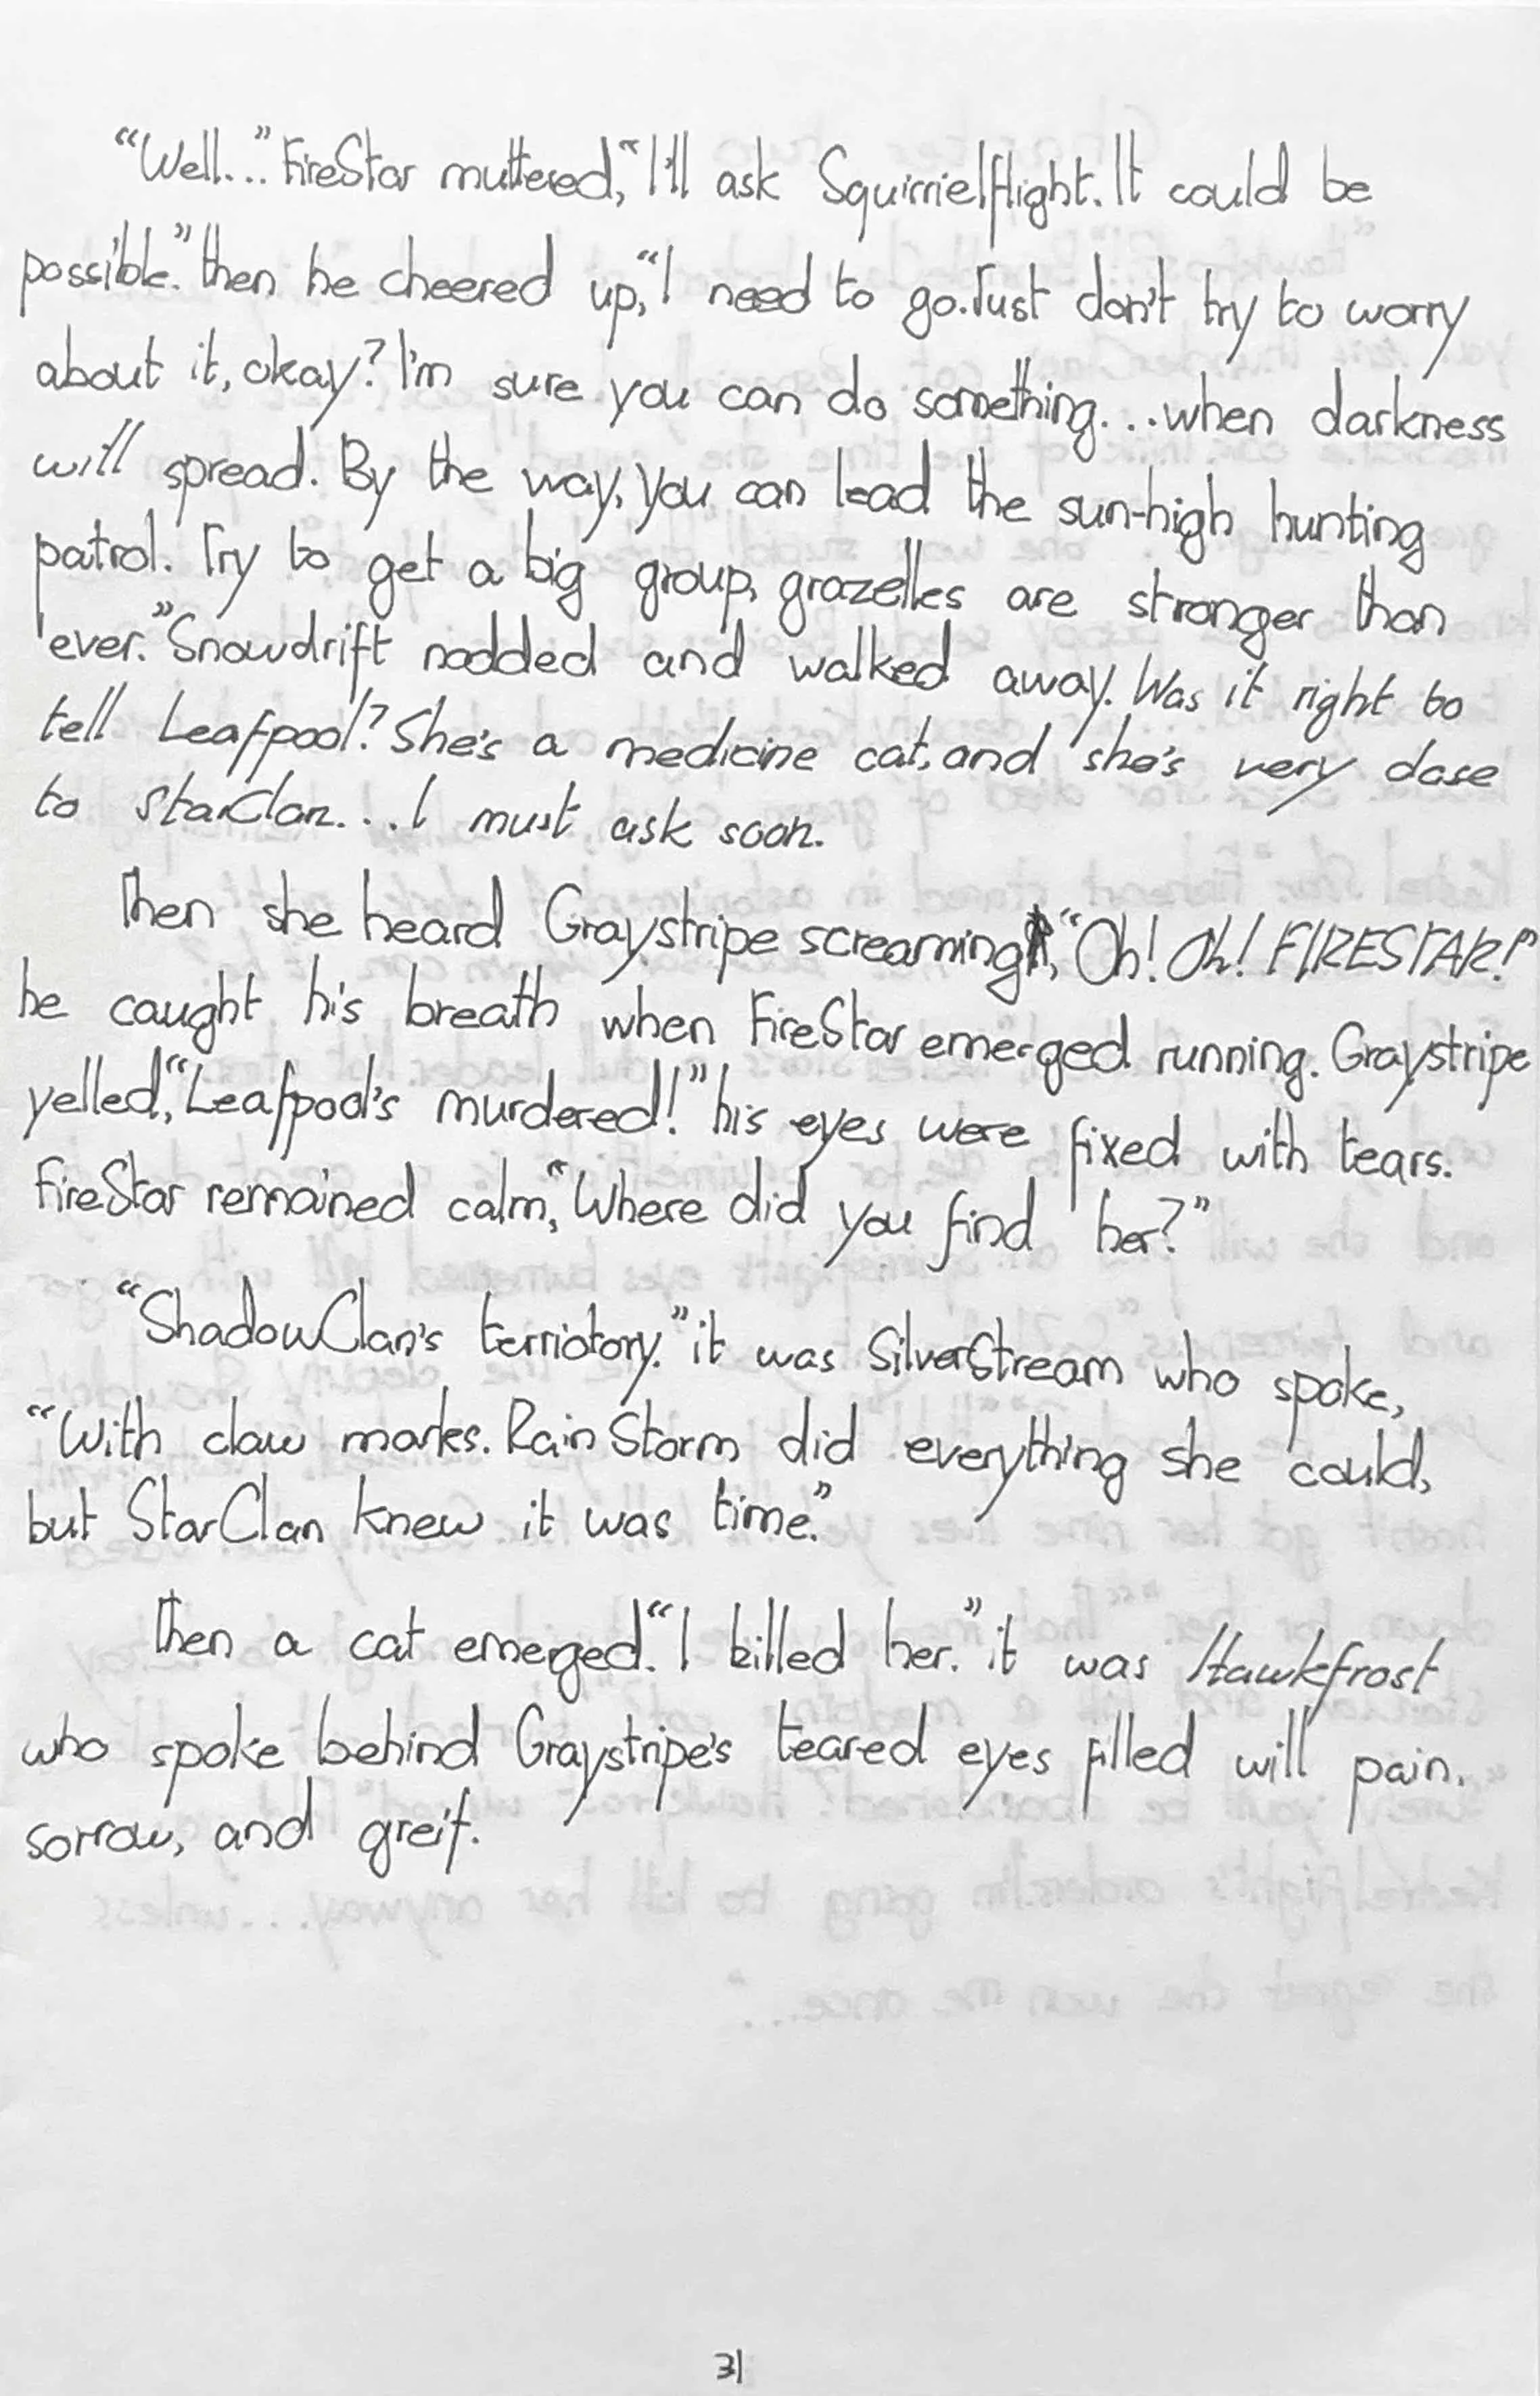 “Well...” FireStar muttered, “I'll ask Squirrielflight. It could be
possible.” then he cheered up, “I need to go. Just don't try to worry
about it, okay? I'm sure you can do something...when darkness
will spread. By the way, you can lead the sun-high hunting
patrol. Try to get a big group, grazelles are stronger than
ever.” Snowdrift nodded and walked away. Was it right to
tell Leafpool? She's a medicine cat, and she's very close
to StarClan...I must ask soon.
Then she heard Graystripe screaming, “Oh! Oh! FIRESTAR!”
he caught his breath when FireStar emerged running. Graystripe
yelled, “Leafpool's murdered!” his eyes were fixed with tears.
FireStar remained calm, “Where did you find her?”
“ShadowClan's terriotory.” it was SilverStream who spoke,
“With claw marks. RainStorm did everything she could,
but StarClan knew it was time.”
Then a cat emerged. “I killed her.” it was Hawkfrost
who spoke behind Graystripe's teared eyes filled will pain,
sorrow, and greif.
31